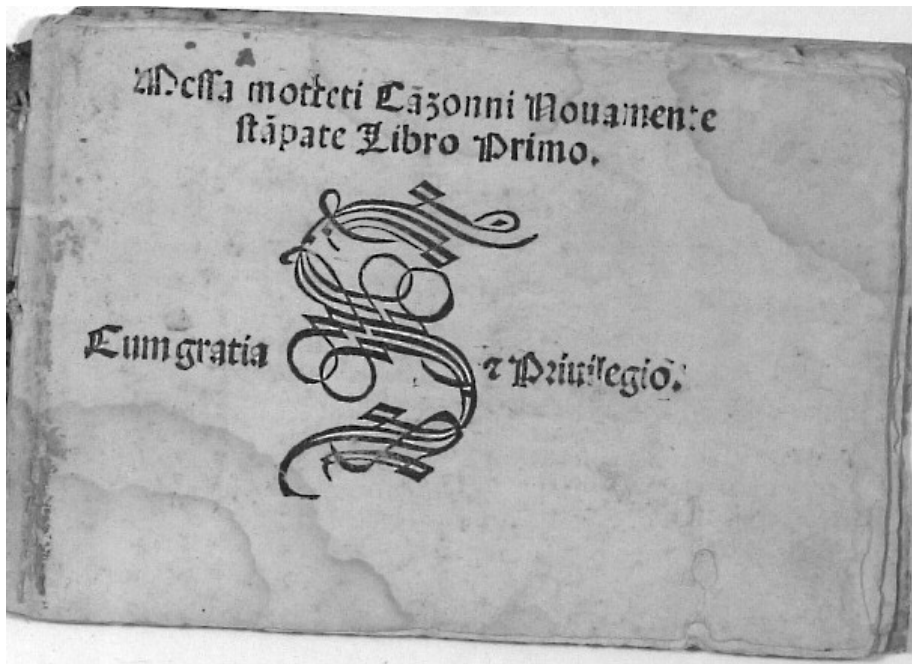 Messa motteti Cāzonni Nouamente
stāpate Libro Primo.
S
Cum gratia ⁊ Priuilegio.